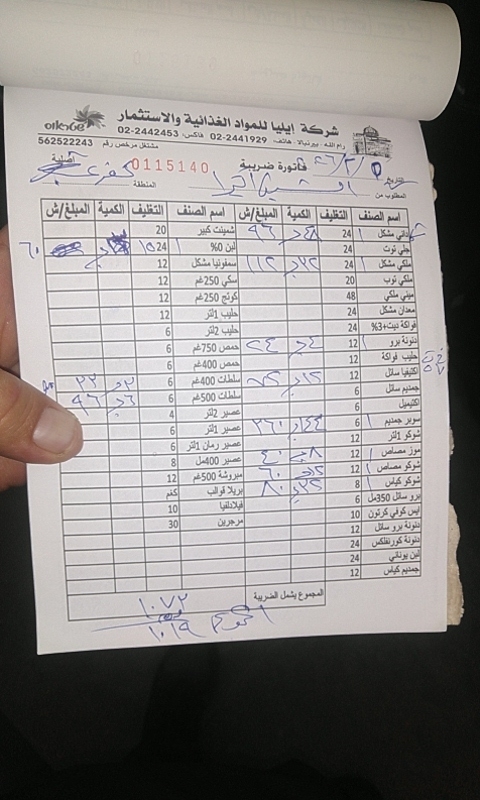 شركة إيليا للمواد الغذائية والاستثمار
رام الله - بيرنبالا: هاتف: 02-2441929 فاكس: 02-2442453
مشتغل مرخص رقم 562522243
فاتورة ضريبية 0115140
التاريخ
المطلوب من المنطقة
اسم الصنف التغليف الكمية المبلغ/ش اسم الصنف التغليف الكمية المبلغ/ش
داني مشكل 24 ٤٨ ٩٦ شمينت كبير 20
جلي توت 24 لبن 0% 24 ١٥ ٦٠
ملكي مشكل 24 ٣٢ ١١٢ سمفونيا مشكل 12
ملكي توب 20 سكي 250غم 12
ميني ملكي 48 كوتج 250غم 12
معدان مشكل 24 حليب 1لتر 12
فواكة ديت+3% 24 حليب 2لتر 6
دنونة برو 12 ٤ ٢٤ حمص 750غم 6
حليب فواكة 12 حمص 400غم 6
اكتيفيا سائل 12 ١٢ سلطات 400غم 6 ٣ ٣٣
جمديم سائل 6 سلطات 500غم 6 ٦ ٩٦
اكتيميل 6 عصير 2لتر 4
سوبر جمديم 6 ٣٦٠ عصير 1لتر 6
شوكو 1لتر 12 عصير رمان 1لتر 6
موز مصاص 12 ٨ ٤٠ عصير 400مل 8
شوكو مصاص 12 ١٢ ٦٠ مبروشة 500غم 12
شوكو كياس 8 ٣٢ ٨٠ بريلا قوالب كغم
برو سائل 350مل 6 فيلادلفيا 10
ايس كوفي كرتون 10 مرجرين 30
دنونة برو سائل 12
دنونة كورنفلكس 24
لبن يوناني 24
جمديم كياس 12
المجموع يشمل الضريبة ١٠٧٢
١٠١٩